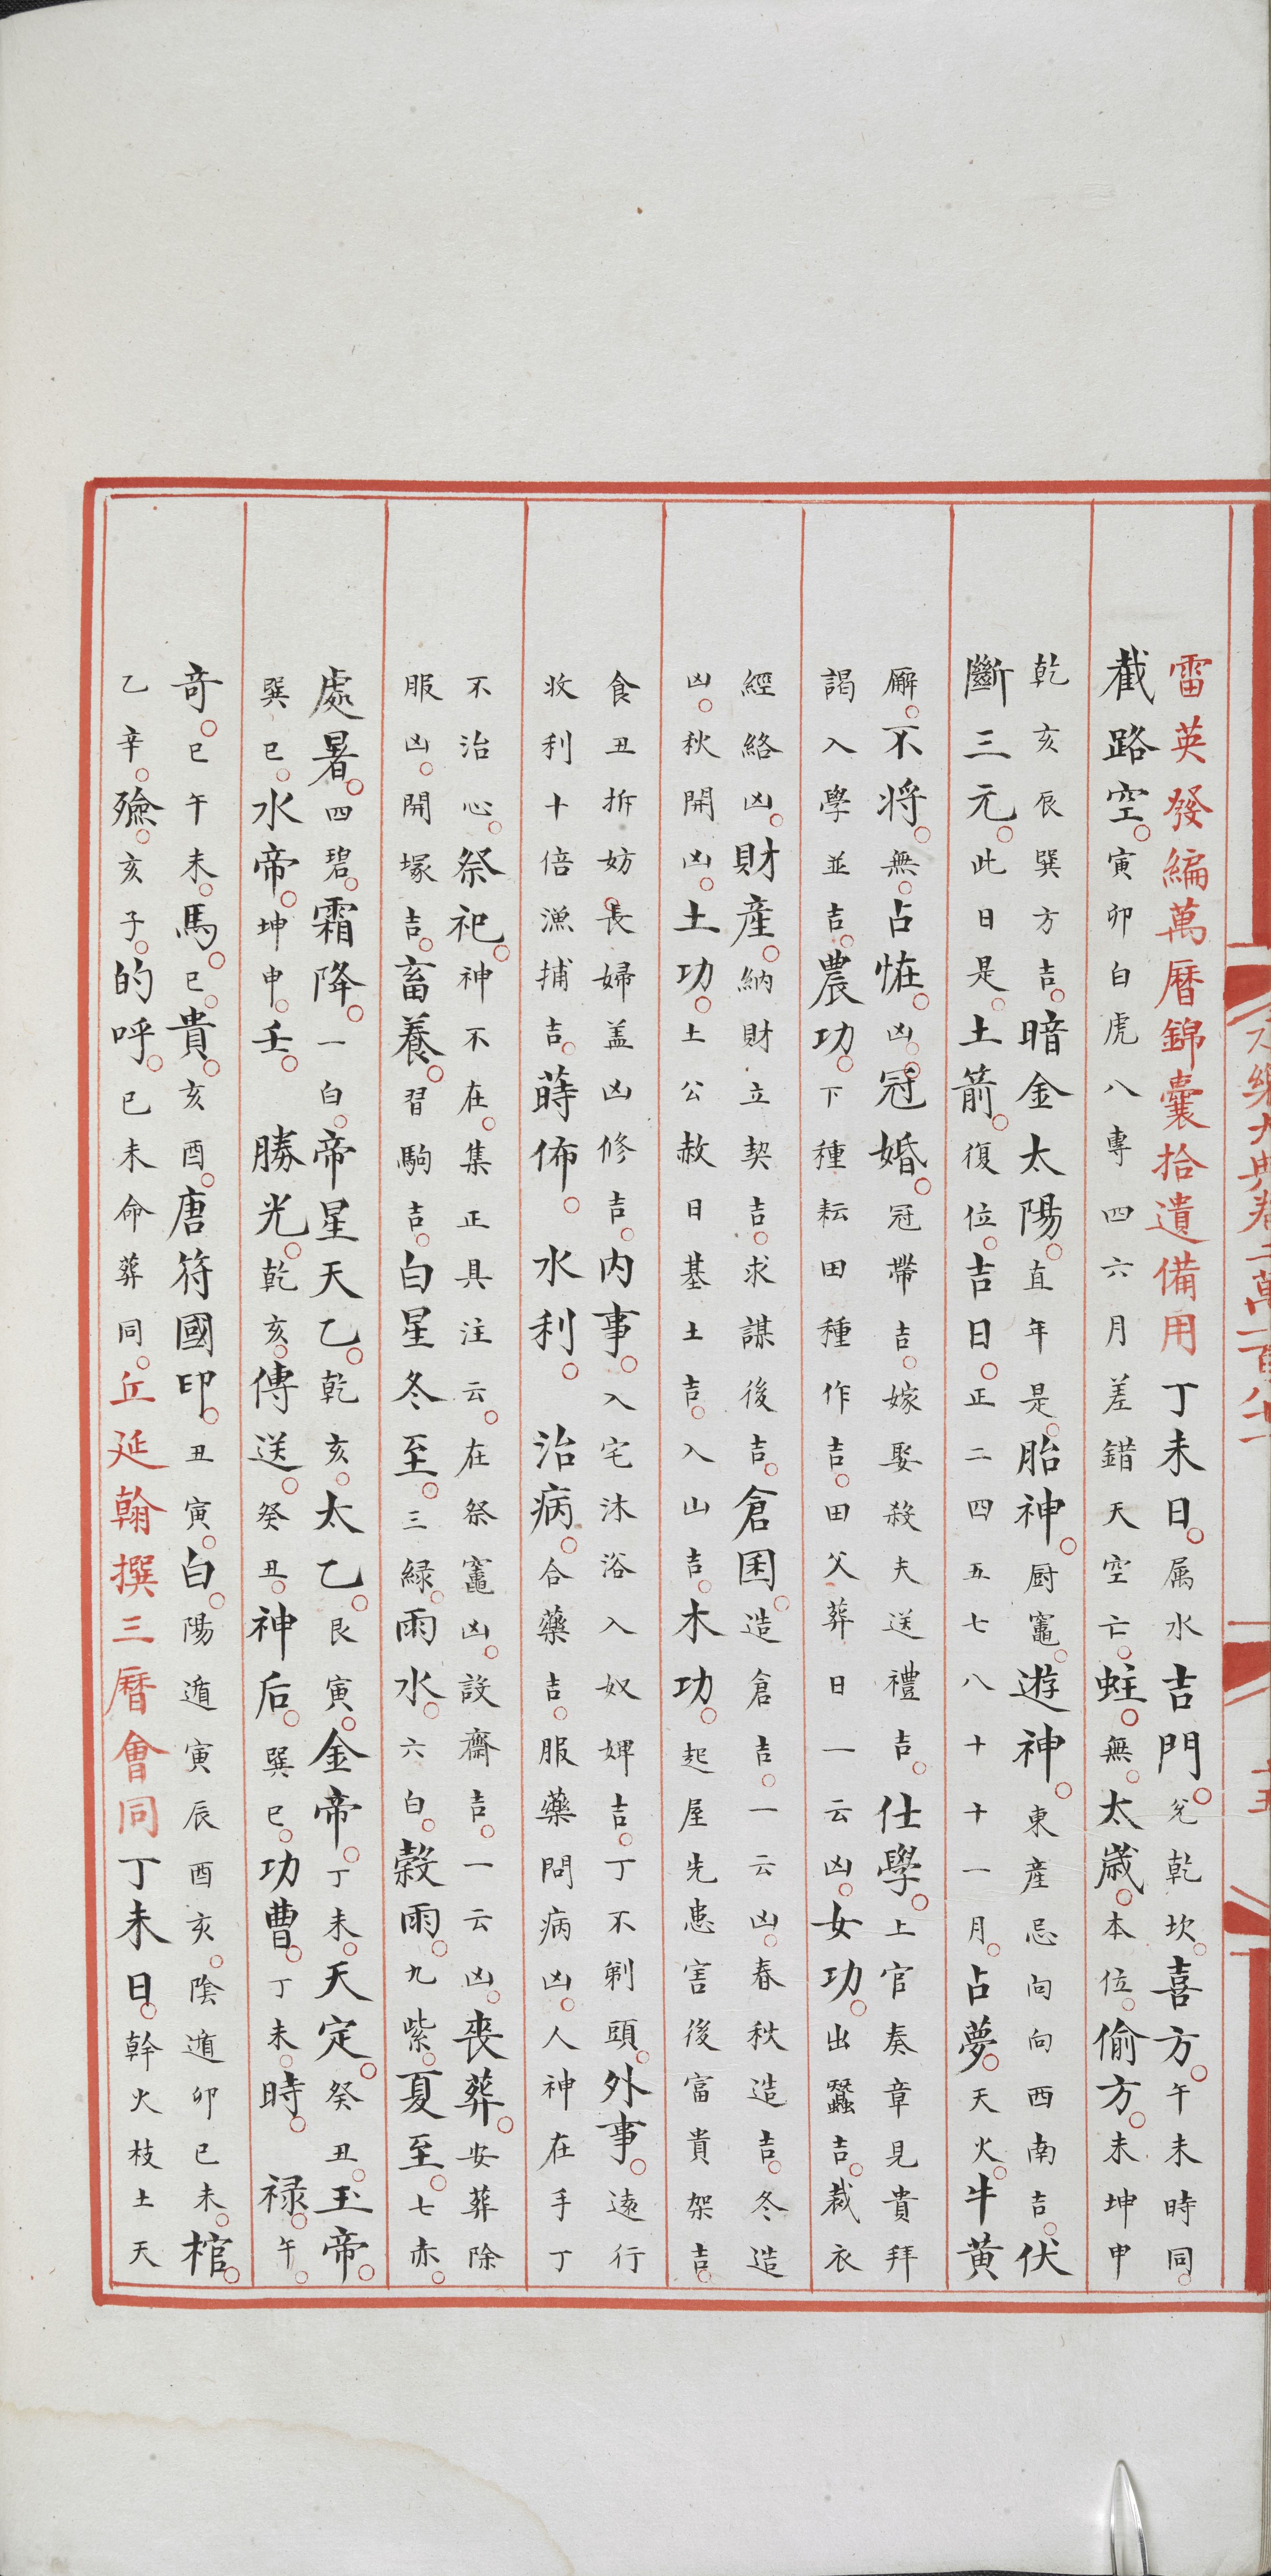 雷英發編萬曆錦囊拾遺備用丁未日属水吉門兊乾坎喜方午未時同
截路空寅卯白虎八專四六月差錯天空亡蛀無太歳本位偷方未坤申
乾亥辰巽方吉暗金太陽直年是胎神厨竈遊神東産忌向向西南吉伏
斷三元此日是土箭復位吉日正二四五七八十十一月占夢天火牛黄
廨不将無占恠凶冠婚冠帶吉嫁娶殺夫送禮吉仕學上官奏章見貴拜
謁入學並吉農功下種耘田種作吉田父葬日一云凶女功出蠶吉裁衣
經絡凶財産納財立契吉求謀後吉倉囷造倉吉一云凶春秋造吉冬造
凶秋開凶土功土公赦日基土吉入山吉木功起屋先患害後富貴架吉
食丑拆妨長婦盖凶修吉内事入宅沐浴入奴婢吉丁不剃頭外事遠行
收利十倍漁捕吉蒔佈水利治病合藥吉服藥問病凶人神在手丁
不治心祭祀神不在集正具注云在祭竈凶設齋吉一云凶丧葬安葬除
服凶開塚吉畜養習駒吉白星冬至三緑雨水六白榖雨九紫夏至七赤
處暑四碧霜降一白帝星天乙乾亥太乙艮寅金帝丁未天定癸丑玉帝
巽巳水帝坤申壬勝光乾亥傳送癸丑神后巽巳功曹丁未時禄午
竒巳午未馬巳貴亥酉唐符國印丑寅白陽遁寅辰酉亥陰遁卯巳未棺
乙辛殮亥子的呼已未命葬同丘延翰撰三曆會同丁未日幹火枝土天